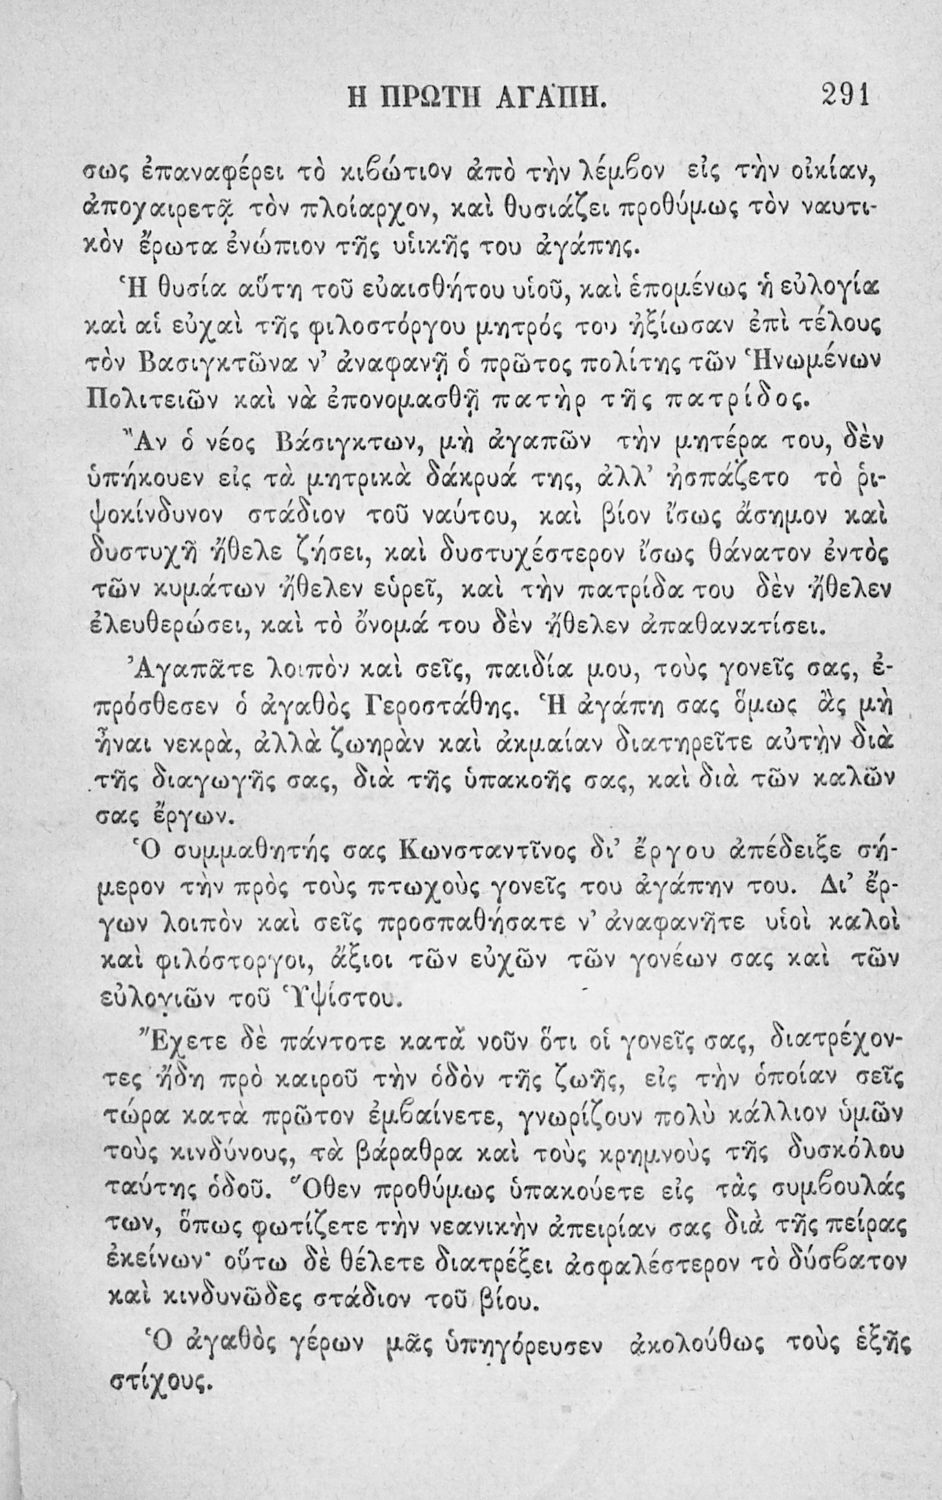 Η ΠΡΩΤΗ ΑΓΑΠΗ. 291
σως ἐπαναφέρει τὸ κιβώτιον ἀπὸ τὴν λέμϐον εἰς τὴν οἰκίαν,
ἀποχαιρετᾷ τὸν πλοίαρχον, καὶ θυσιάζει προθύμως τὸν ναυτι-
κὸν ἔρωτα ἐνώπιον τῆς υἱικῆς του ἀγάπης.
Ἡ θυσία αὕτη τοῦ εὐαισθήτου υἱοῦ, καὶ ἑπομένως ἡ εὐλογία
καὶ αἱ εὐχαὶ τῆς φιλοστόργου μητρός του ἠξίωσαν ἐπὶ τέλους
τὸν Βασιγκτῶνα ν’ ἀναφανῇ ὁ πρῶτος πολίτης τῶν Ἡνωμένων
Πολιτειῶν καὶ νὰ ἐπονομασθῇ πατὴρ τῆς πατρίδος.
Ἂν ὁ νέος Βάσιγκτων, μὴ ἀγαπῶν τὴν μητέρα του, δὲν
ὑπήκουεν εἰς τὰ μητρικὰ δάκρυά της, ἀλλ’ ἠσπάζετο τὸ ῥι-
ψοκίνδυνον στάδιον τοῦ ναύτου, καὶ βίον ἴσως ἄσημον καὶ
δυστυχῆ ἤθελε ζήσει, καὶ δυστυχέστερον ἴσως θάνατον ἐντὸς
τῶν κυμάτων ἤθελεν εὑρεῖ, καὶ τὴν πατρίδα του δὲν ἤθελεν
ἐλευθερώσει, καὶ τὸ ὄνομά του δὲν ἤθελεν ἀπαθανατίσει.
Ἀγαπᾶτε λοιπὸν καὶ σεῖς, παιδία μου, τοὺς γονεῖς σας, ἐ-
πρόσθεσεν ὁ ἀγαθὸς Γεροστάθης. Ἡ ἀγάπη σας ὅμως ἂς μὴ
ἦναι νεκρὰ, ἀλλὰ ζωηρὰν καὶ ἀκμαίαν διατηρεῖτε αὐτὴν διὰ
τῆς διαγωγῆς σας, διὰ τῆς ὑπακοῆς σας, καὶ διὰ τῶν καλῶν
σας ἔργων.
Ὁ συμμαθητής σας Κωνσταντῖνος δι’ ἔργου ἀπέδειξε σή-
μερον τὴν πρὸς τοὺς πτωχοὺς γονεῖς του ἀγάπην του. Δι’ ἔρ-
γων λοιπὸν καὶ σεῖς προσπαθήσατε ν’ ἀναφανῆτε υἱοὶ καλοὶ
καὶ φιλόστοργοι, ἄξιοι τῶν εὐχῶν τῶν γονέων σας καὶ τῶν
εὐλογιῶν τοῦ Ὑψίστου.
Ἔχετε δὲ πάντοτε κατὰ νοῦν ὅτι οἱ γονεῖς σας, διατρέχον-
τες ἤδη πρὸ καιροῦ τὴν ὁδὸν τῆς ζωῆς, εἰς τὴν ὁποίαν σεῖς
τώρα κατὰ πρῶτον ἐμϐαίνετε, γνωρίζουν πολὺ κάλλιον ὑμῶν
τοὺς κινδύνους, τὰ βάραθρα καὶ τοὺς κρημνοὺς τῆς δυσκόλου
ταύτης ὁδοῦ. Ὅθεν προθύμως ὑπακούετε εἰς τὰς συμϐουλάς
των, ὅπως φωτίζετε τὴν νεανικὴν ἀπειρίαν σας διὰ τῆς πείρας
ἐκείνων· οὕτω δὲ θέλετε διατρέξει ἀσφαλέστερον τὸ δύσϐατον
καὶ κινδυνῶδες στάδιον τοῦ βίου.
Ὁ ἀγαθὸς γέρων μᾶς ὑπηγόρευσεν ἀκολούθως τοὺς ἑξῆς
στίχους.